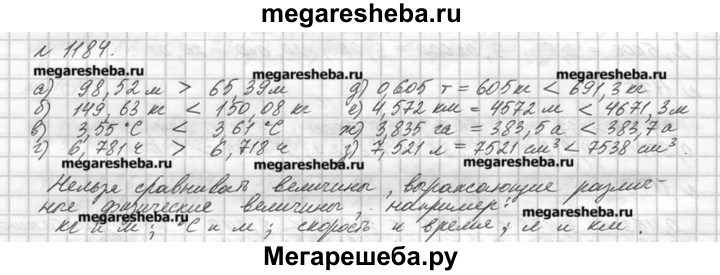 megaresheba.ru
№ 1184.
megaresheba.ru megaresheba.ru megaresheba.ru
а) 98,52 м > 65,39 м д) 0,605 т = 605 кг < 691,3 кг
б) 149,63 кг < 150,08 кг е) 4,572 км = 4572 м < 4671,3 м
в) 3,55 °С < 3,61 °С ж) 3,835 га = 383,5 а < 383,7 а
г) 6,781 ч > 6,718 ч з) 7,521 л = 7521 см³ < 7538 см³.
megaresheba.ru megaresheba.ru megaresheba.ru
Нельзя сравнивать величины, выражающие различ-
ные физические величины, например:
megaresheba.ru megaresheba.ru megaresheba.ru
кг и м; °С и м; скорость и время; л и км.
Мегарешеба.ру